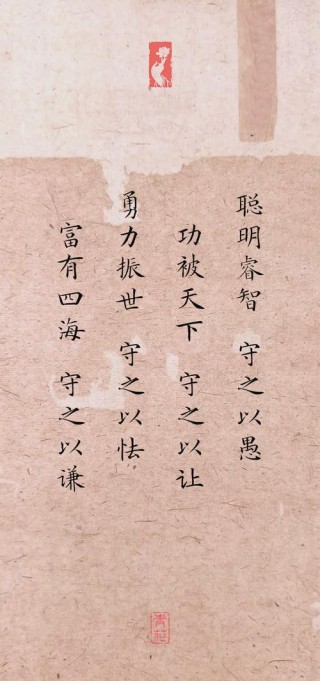 聪明睿智 守之以愚
功被天下 守之以让
勇力振世 守之以怯
富有四海 守之以谦